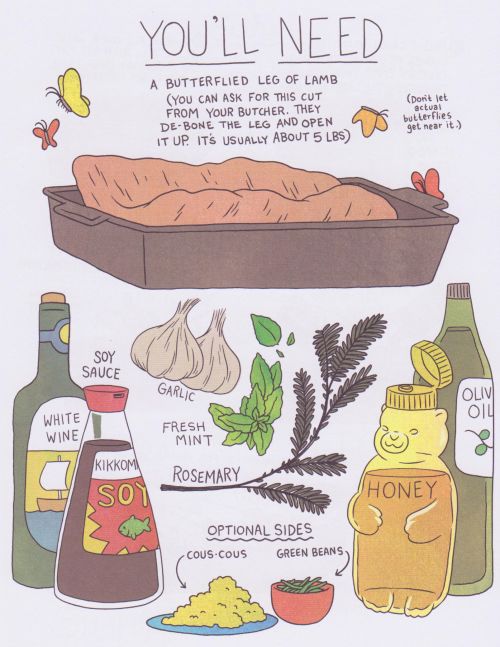 YOU'LL NEED
A BUTTERFLIED LEG OF LAMB
(YOU CAN ASK FOR THIS CUT
FROM YOUR BUTCHER. THEY
DE-BONE THE LEG AND OPEN
IT UP. IT'S USUALLY ABOUT 5 LBS)
(Don't let
actual
butterflies
get near it.)
SOY
SAUCE
GARLIC
WHITE
WINE
FRESH
MINT
OLIV
OIL
KIKKOM
SOY
ROSEMARY
HONEY
OPTIONAL SIDES
COUS-COUS
GREEN BEANS